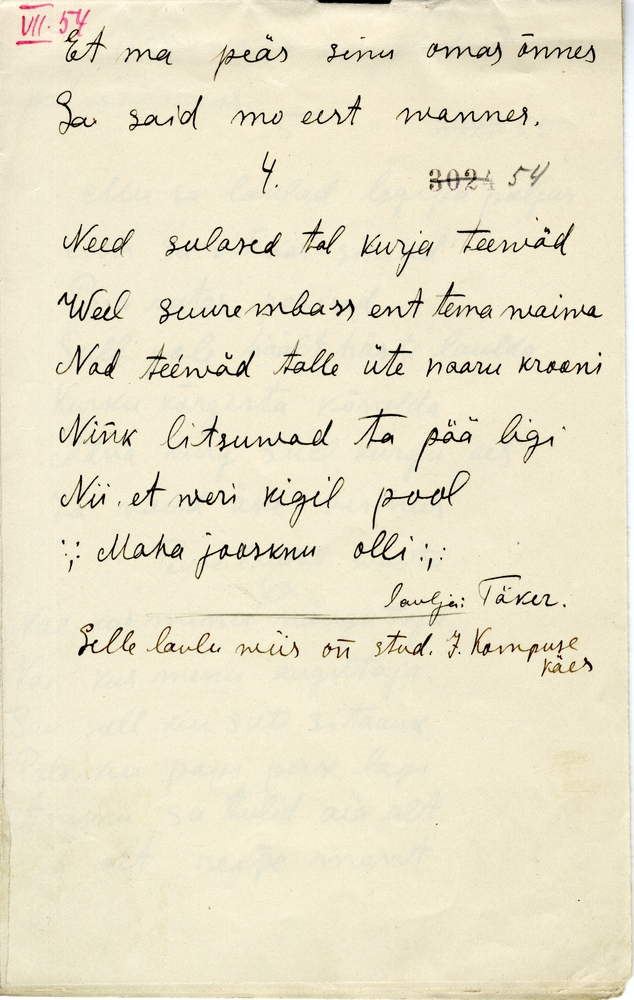 VII. 54
Et ma peäs sinu omas õnnes
Sa said mo eest wannes.
4.
3024 54
Need sulased tal kurja teewäd
Weel suurembass ent tema waiwa
Nad teewäd talle üte naaru krooni
Niñk litsuwad ta pää ligi
Nii, et weri kigil pool
:,: Maha joosknu olli :,:
laulja: Täker.
Selle laulu wiis on̄ stud. J. Kompuse
käes